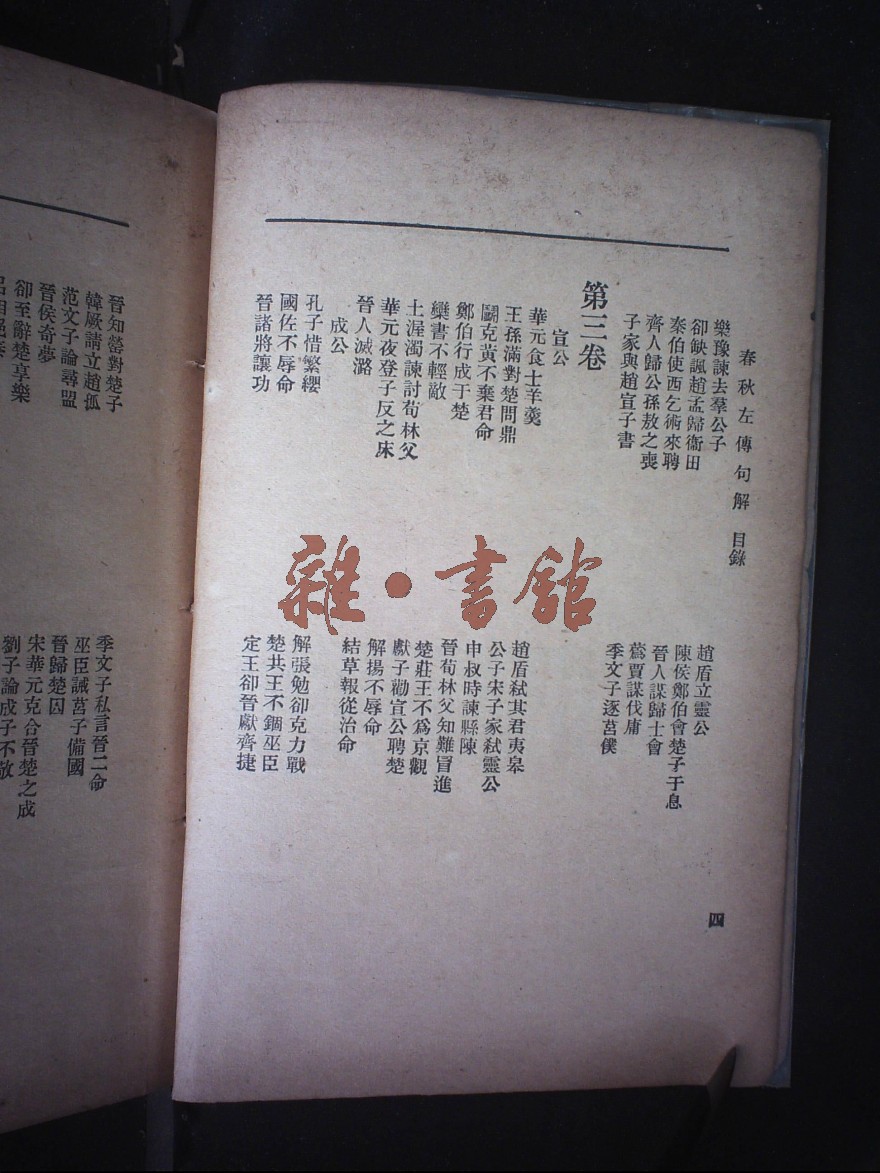 春秋左傳句解 目錄
樂豫諫去羣公子
趙盾立靈公
卻缺諷趙孟歸衞田
陳侯鄭伯會楚子于息
秦伯使西乞術來聘
晉人謀歸士會
齊人歸公孫敖之喪
蔿賈謀伐庸
子家與趙宣子書
季文子逐莒僕
第三卷
宣公
華元食士羊羹
趙盾弒其君夷皋
王孫滿對楚問鼎
公子宋子家弒靈公
鬭克黃不棄君命
申叔時諫縣陳
鄭伯行成于楚
晉荀林父知難冒進
欒書不輕敵
楚莊王不爲京觀
士渥濁諫討荀林父
獻子勸宣公聘楚
華元夜登子反之床
解揚不辱命
晉人滅潞
結草報從治命
成公
孔子惜繁纓
解張勉卻克力戰
國佐不辱命
楚共王不錮巫臣
晉諸將讓功
定王卻晉獻齊捷
四
雜·書館
晉知罃對楚子
季文子私言晉二命
韓厥請立趙孤
巫臣誡莒子備國
范文子論尋盟
晉歸楚囚
晉侯奇夢
宋華元克合晉楚之成
卻至辭楚享樂
劉子論成子不敬